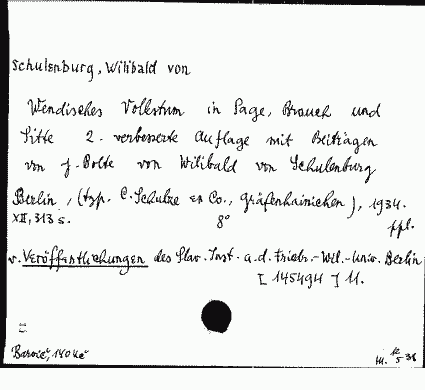 Schulenburg, Wilibald von
Wendisches Volkstum in Sage, Brauch und
Sitte 2. verbesserte Auflage mit Beiträgen
von J. Bolte von Wilibald von Schulenburg
Berlin, (typ. C. Schulze en Co., Gräfenhainichen), 1934.
XII, 313 s. 8° ppl.
v. Veröffentlichungen des Slav. Inst. a. d. Friedr.-Wil.-Univ. Berlin
[145494] 11.
140 Kč